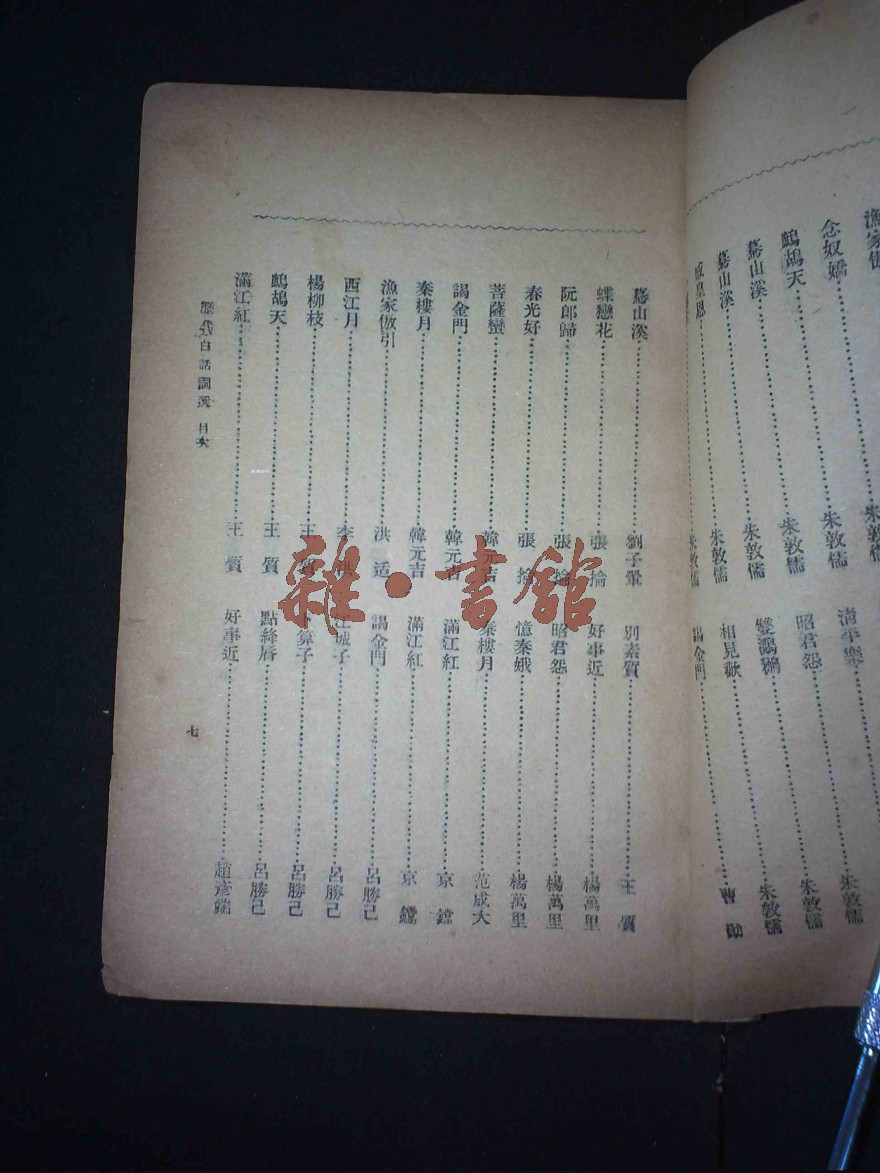 漁家傲 朱敦儒 清平樂 朱敦儒
念奴嬌 朱敦儒 昭君怨 朱敦儒
鷓鴣天 朱敦儒 雙鸂鶒 朱敦儒
驀山溪 朱敦儒 相見歡 曹勛
驀山溪 朱敦儒 謁金門
感皇恩 朱敦儒
驀山溪 劉子翬 別素質 王質
蝶戀花 張掄 好事近 楊萬里
阮郎歸 張掄 昭君怨 楊萬里
春光好 張掄 憶秦娥 楊萬里
菩薩蠻 韓元吉 秦樓月 范成大
謁金門 韓元吉 滿江紅 京鏜
秦樓月 韓元吉 滿江紅 京鏜
漁家傲引 洪适 謁金門 呂勝己
西江月 李 江城子 呂勝己
楊柳枝 王質 卜算子 呂勝己
鷓鴣天 王質 點絳唇 呂勝己
滿江紅 王質 好事近 趙彥端
歷代白話詞選 目次
七
雜·書館